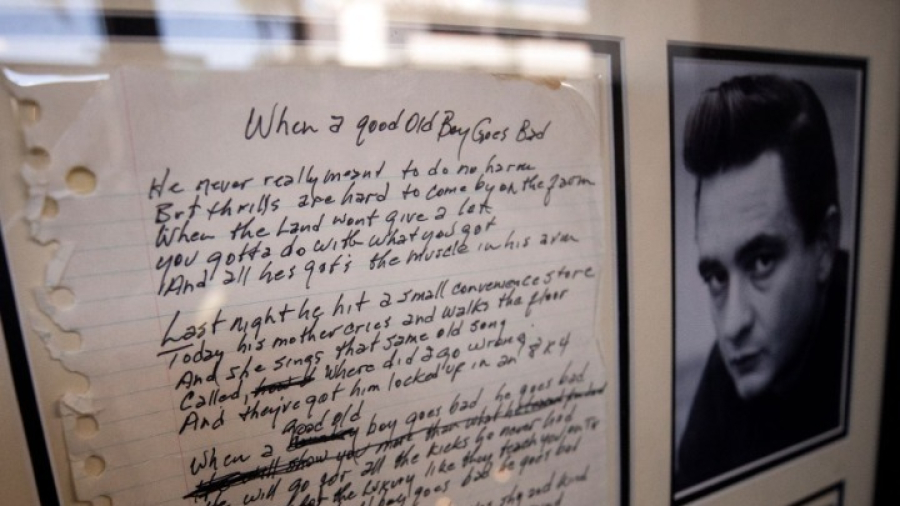 When a good Old Boy Goes Bad
He never really meant to do no harm
But thrills are hard to come by on the farm
When the Land wont give a lot
you gotta do with what you got
And all hes got's the muscle in his arm
Last night he hit a small convenience store
Today his mother cries and walks the floor
And she sings that same old song
Called, Where did I go wrong.
And they've got him locked up in an 8x4
When a good old boy goes bad, he goes bad
will show you more than what
He will go for all the kicks he never had
for the Luxury like they teach you on TV
boy goes bad he goes bad
shy and kind